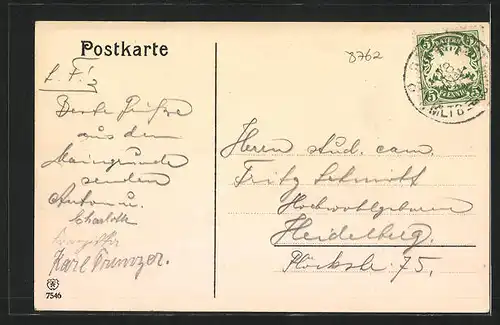 Postkarte
8762
BAYERN
5 5
PFENNIG
5 5
MLTBG
L. F.!
Beste Grüsse
aus dem
Maingrunde
senden
Anton u.
Charlotte
Karl Trunzer.
Herrn stud. cam.
Fritz Schmitt
Hochwohlgeboren
Heidelberg.
Plöckstr. 75.
7546